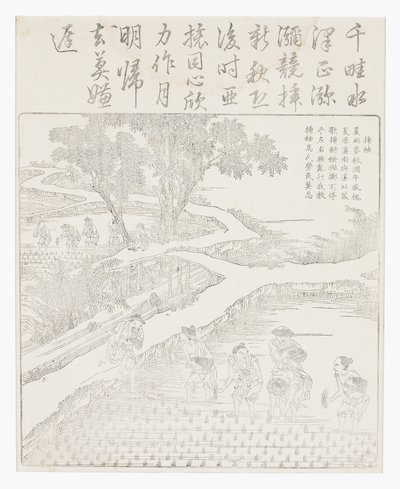 千畦水
澤正瀰
瀰競插
新秧恐
後時亞
旅同心欣
力作月
明歸
去莫嫌
遲
插秧
晨雨麥秋潤午風槐
夏涼溪南與溪北嘯
歌插新秧拋擲不停
手左右無亂行
秧馬代勞民莫忘